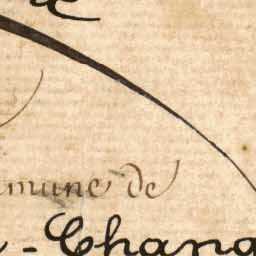 mune de
- Chang